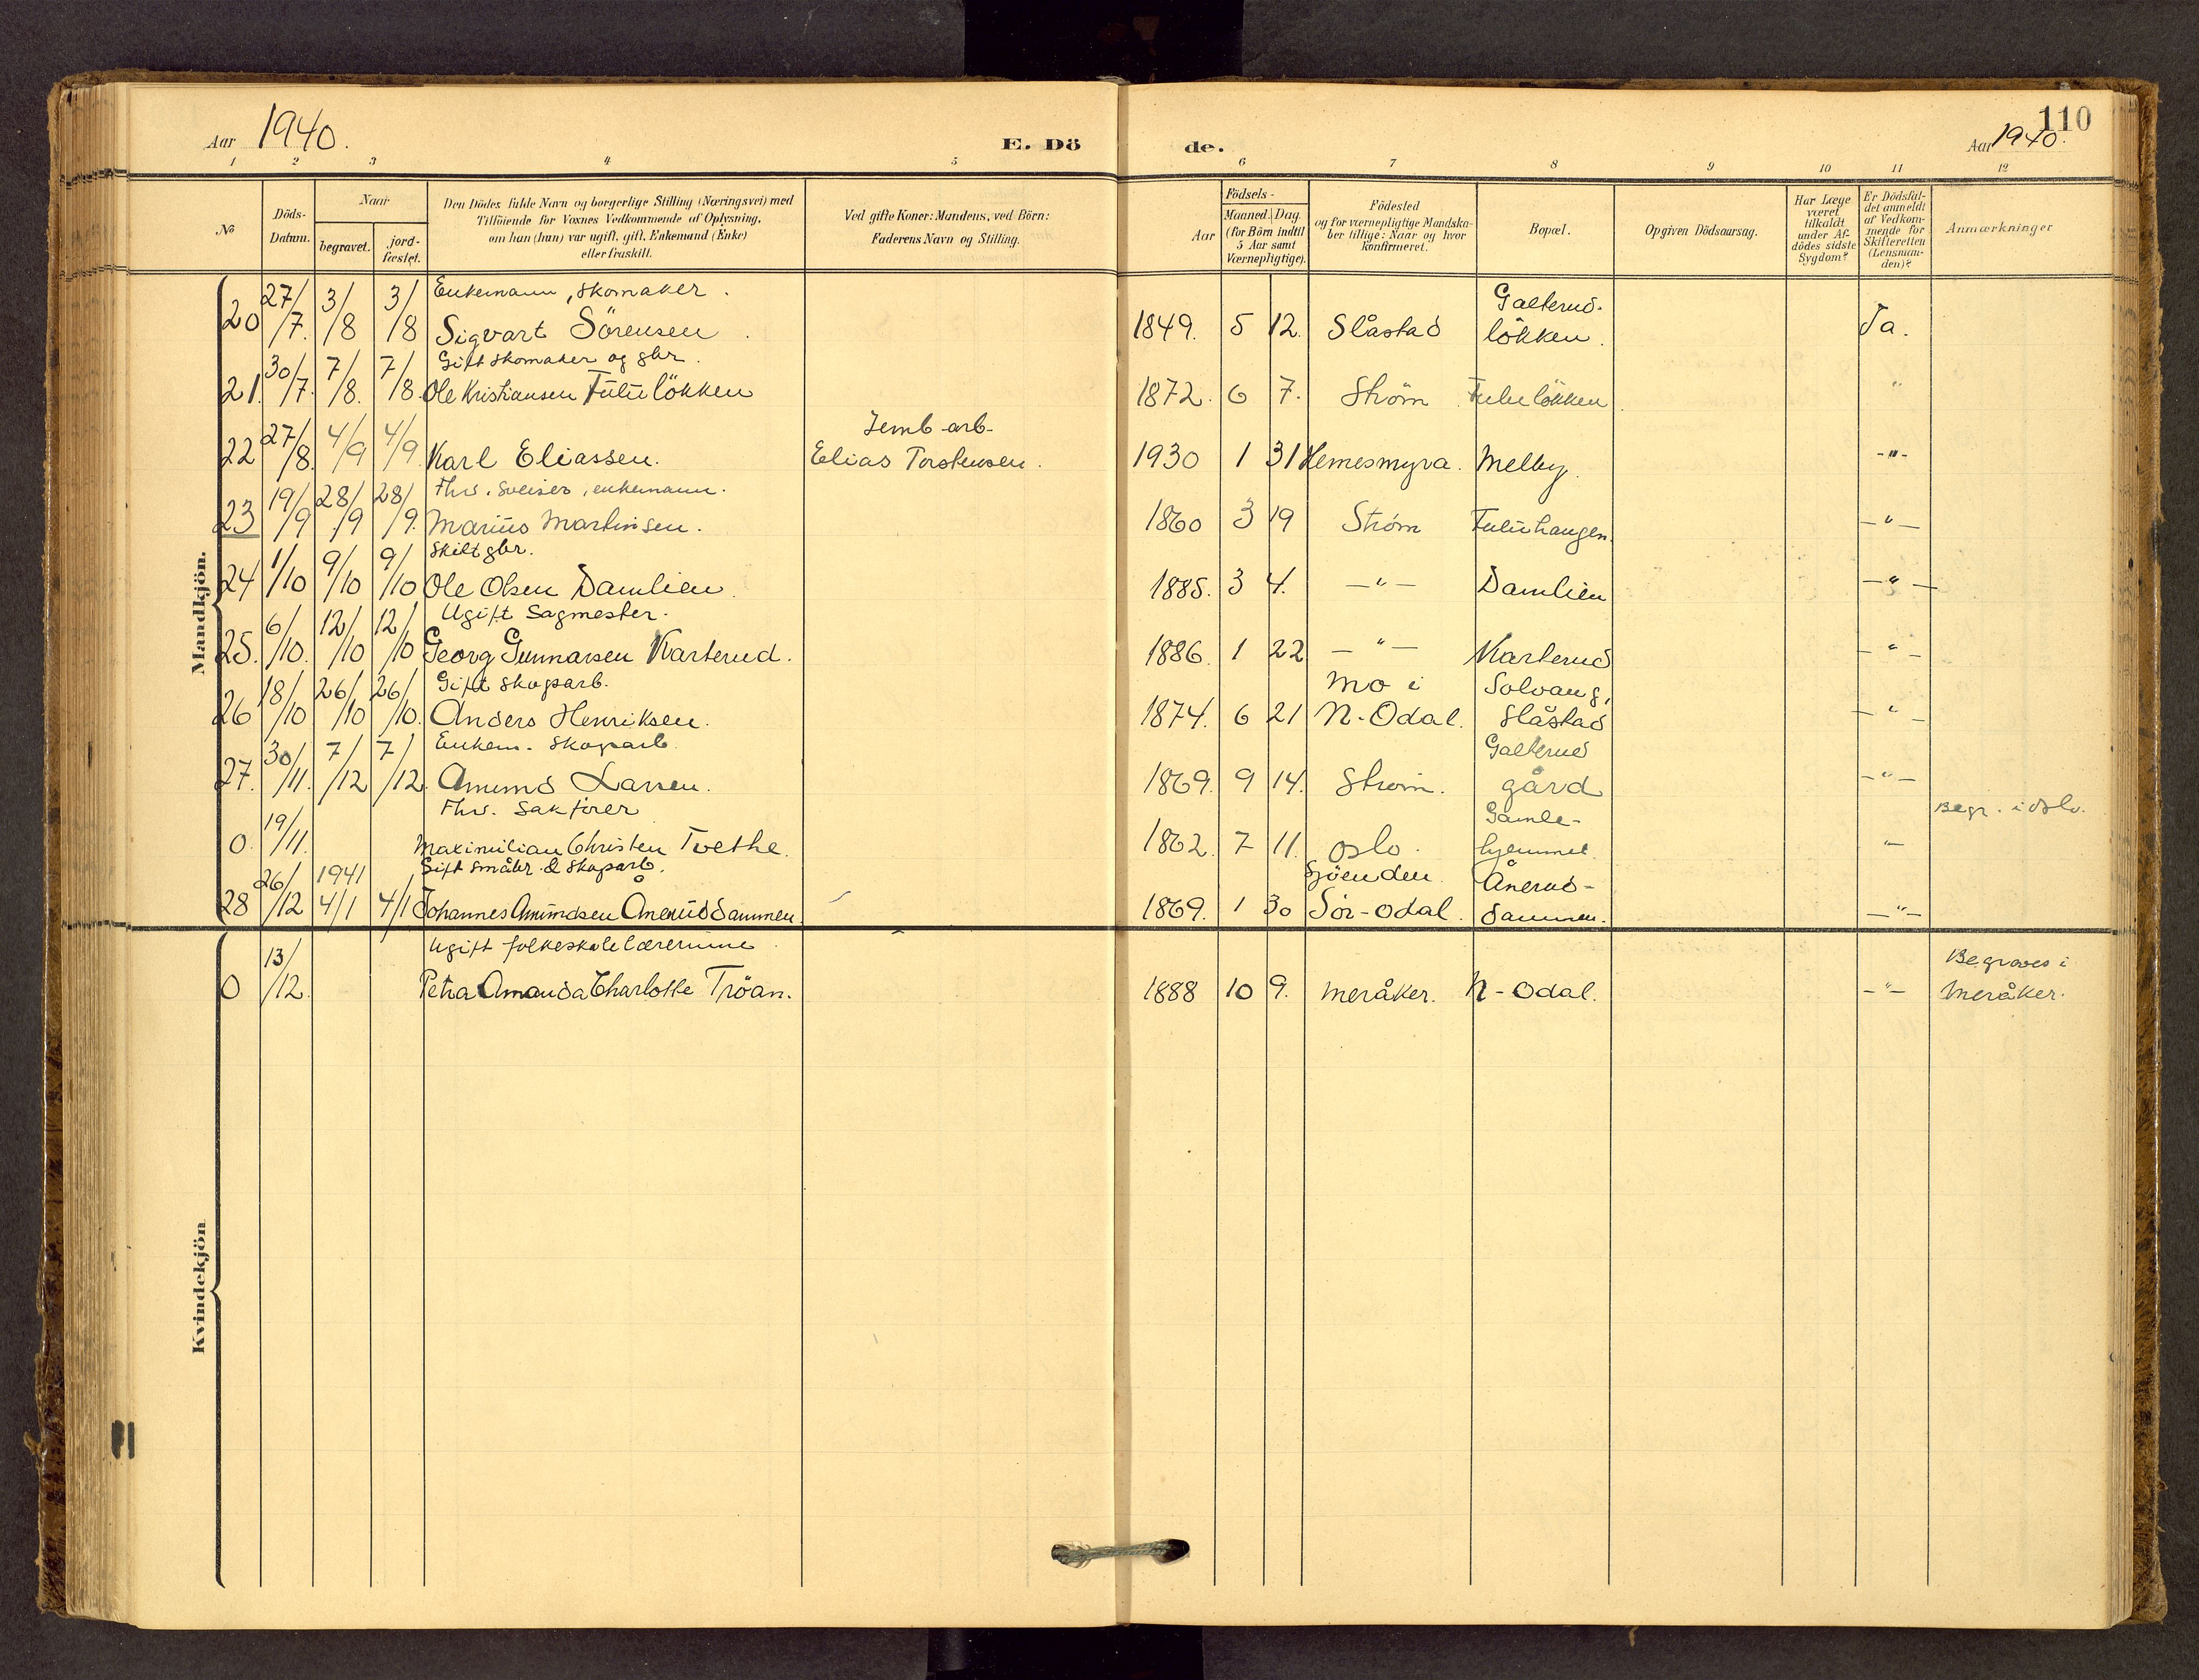 Aar 1940.
E. Dö
de.
110
Aar 1940.
1 2 3 4 5 6 7 8 9 10 11 12
No
Döds-Datum.
Naar
begravet.
jord-fæstet.
Den Dödes fulde Navn og borgerlige Stilling (Næringsvei) med
Tilföiende for Voxnes Vedkommende af Oplysning,
om han (hun) var ugift, gift, Enkemand (Enke)
eller fraskilt.
Ved gifte Koner: Mandens, ved Börn:
Faderens Navn og Stilling.
Födsels-
Aar
Maaned. Dag.
(for Börn indtil
5 Aar samt
Værnepligtige).
Födested
og for værnepligtige Mandska-
ber tillige: Naar og hvor
konfirmeret.
Bopæl.
Opgiven Dödsaarsag.
Har Læge
været
tilkaldt
under Af-
dödes sidste
Sygdom?
Er Dödsfal-
det anmeldt
af Vedkom-
mende for
Skifteretten
(Lensman-
den)?
Anmærkninger
Mandkjön.
Enkemann, skomaker.
Galterud-
20 27/7. 3/8 3/8 Sigvart Sörensen. 1849. 5 12. Slåstad lökken. Ja.
Gift skomaker og gbr.
21. 30/7. 7/8. 7/8. Ole Kristiansen Fululökken 1872. 6 7. Ström Fululökken. "
Jernb-arb-
22 27/8. 4/9 4/9 Karl Eliassen. Elias Torstensen. 1930 1 31 Hemesmyra. Melby. -"-
Fhv. sveiser, enkemann.
23 19/9 28/9 28/9. Marius Martinsen. 1860 3 19 Ström Fuluhaugen. -"-
Skilt gbr.
24 1/10 9/10 9/10 Ole Olsen Damlien. 1885. 3 4. -"- Damlien -"-
Ugift Sagmester.
25. 6/10. 12/10 12/10 Georg Gunnarsen Karterud. 1886. 1 22 -"- Karterud -"-
Gift skogsarb. Mo i Solvang,
26 18/10 26/10 26/10. Anders Henriksen. 1874. 6 21 N-Odal. Slåstad -"-
Enkem. Skogsarb. Galterud
27. 30/11. 7/12 7/12. Amund Larsen. 1869. 9 14. Ström. gård -"-
Fhv. Sakförer Gamle- Begr. i Oslo.
0. 19/11. Maximilian Christen Tvethe. 1862. 7 11. Oslo. hjemmet. "-
Gift småbr. & skogsarb. Sjöenden Ånerud-
28 26/12 1941 4/1 4/1 Johannes Amundsen Ånerud dammen. 1869. 1 30 Sör-Odal. dammen. -"-
Kvindekjön
Ugift folkeskolelærerinne Begraves i
0 13/12. Petra Amanda Charlotte Tröan. 1888 10 9. Meråker. N-Odal. -"- Meråker.